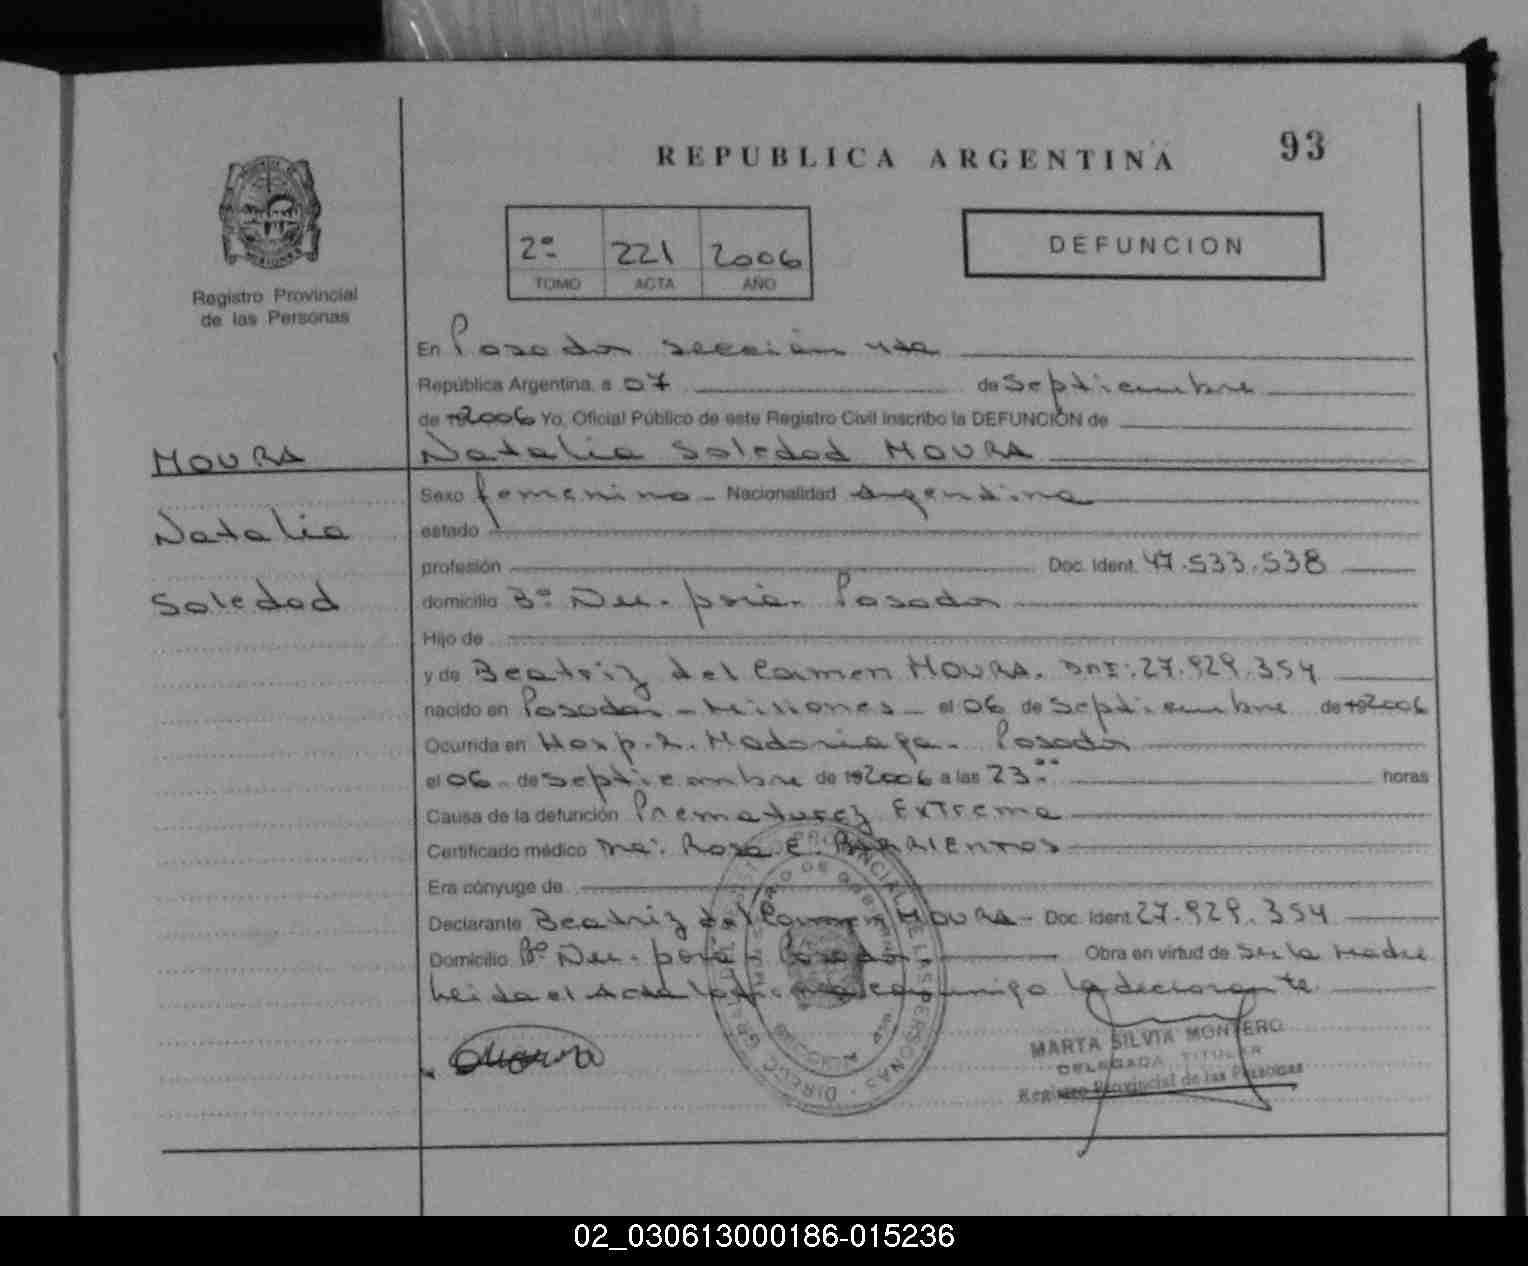 REPUBLICA ARGENTINA
93
2º 221 2006
TOMO ACTA AÑO
DEFUNCION
Registro Provincial
de las Personas
En Posadas sección
República Argentina, a 07 de Septiembre
de 192006 Yo, Oficial Público de este Registro Civil Inscribo la DEFUNCIÓN de
MOURA
Natalia Soledad MOURA
Sexo femenino - Nacionalidad Argentina
Natalia
estado
profesión Doc. Ident. 47.533.538
Soledad
domicilio Bº Nu. Posadas
Hijo de
y de Beatriz del Carmen MOURA. DNI: 27.929.354
nacido en Posadas - Misiones - el 06 de Septiembre de 192006
Ocurrida en Hosp. R. Madariaga. Posadas
el 06 - de Septiembre de 192006 a las 23 horas
Causa de la defunción Prematurez Extrema
Certificado médico Rosa E. BARRIENTOS
Era cónyuge de
Declarante Beatriz del Carmen MOURA - Doc. Ident 27.929.354
Domicilio Bº Nu. Posadas Obra en virtud de Ser la Madre
Leida el Acta conmigo la declarante
MARTA SILVIA MONTERO
DELEGADA TITULAR
Registro Provincial de las Personas
02_030613000186-015236